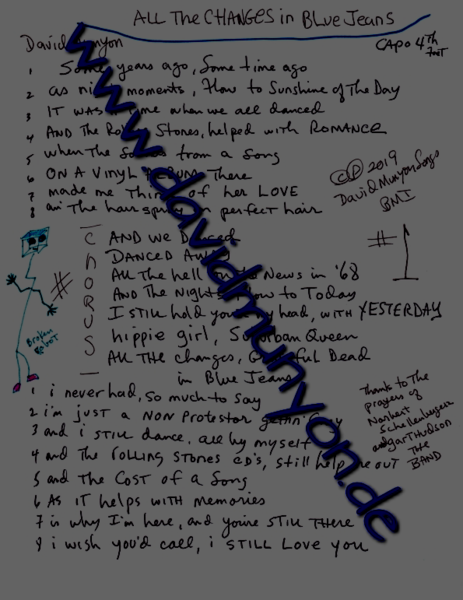 ALL THE CHANGES in BLUE JEANS
David Munyon
CAPO 4TH FRET
1 Some years ago, Some time ago
2 as moments, Flow to Sunshine of The Day
3 IT WAS time when we all danced
4 AND The Rolling Stones, helped with ROMANCE
5 when The from a Song
6 ON A VINYL ALBUM There
7 made me Think of her LOVE
8 The hair spray perfect hair
© 2019
David Munyon Songs
BMI
# 1
CHORUS
AND we Danced
DANCED AWAY
All the hell News in '68
AND The Night to Today
I STILL hold your head, WITH YESTERDAY
hippie girl, Suburban Queen
All THe changes, Grateful Dead
in Blue Jeans
#
Broken Robot
1 i never had, so much to say
2 i'm just a NON Protestor
3 and i STILL dance, all by myself
4 and the ROLLING STONES CD's, still help me out
5 and The Cost of a Song
6 AS IT helps WITH Memories
7 is why I'm here, and you're STILL THERE
8 i wish you'd call, i STILL Love you
Thanks to The
prayers of
Norbert
and Garth Hudson
THE
BAND
www.davidmunyon.de